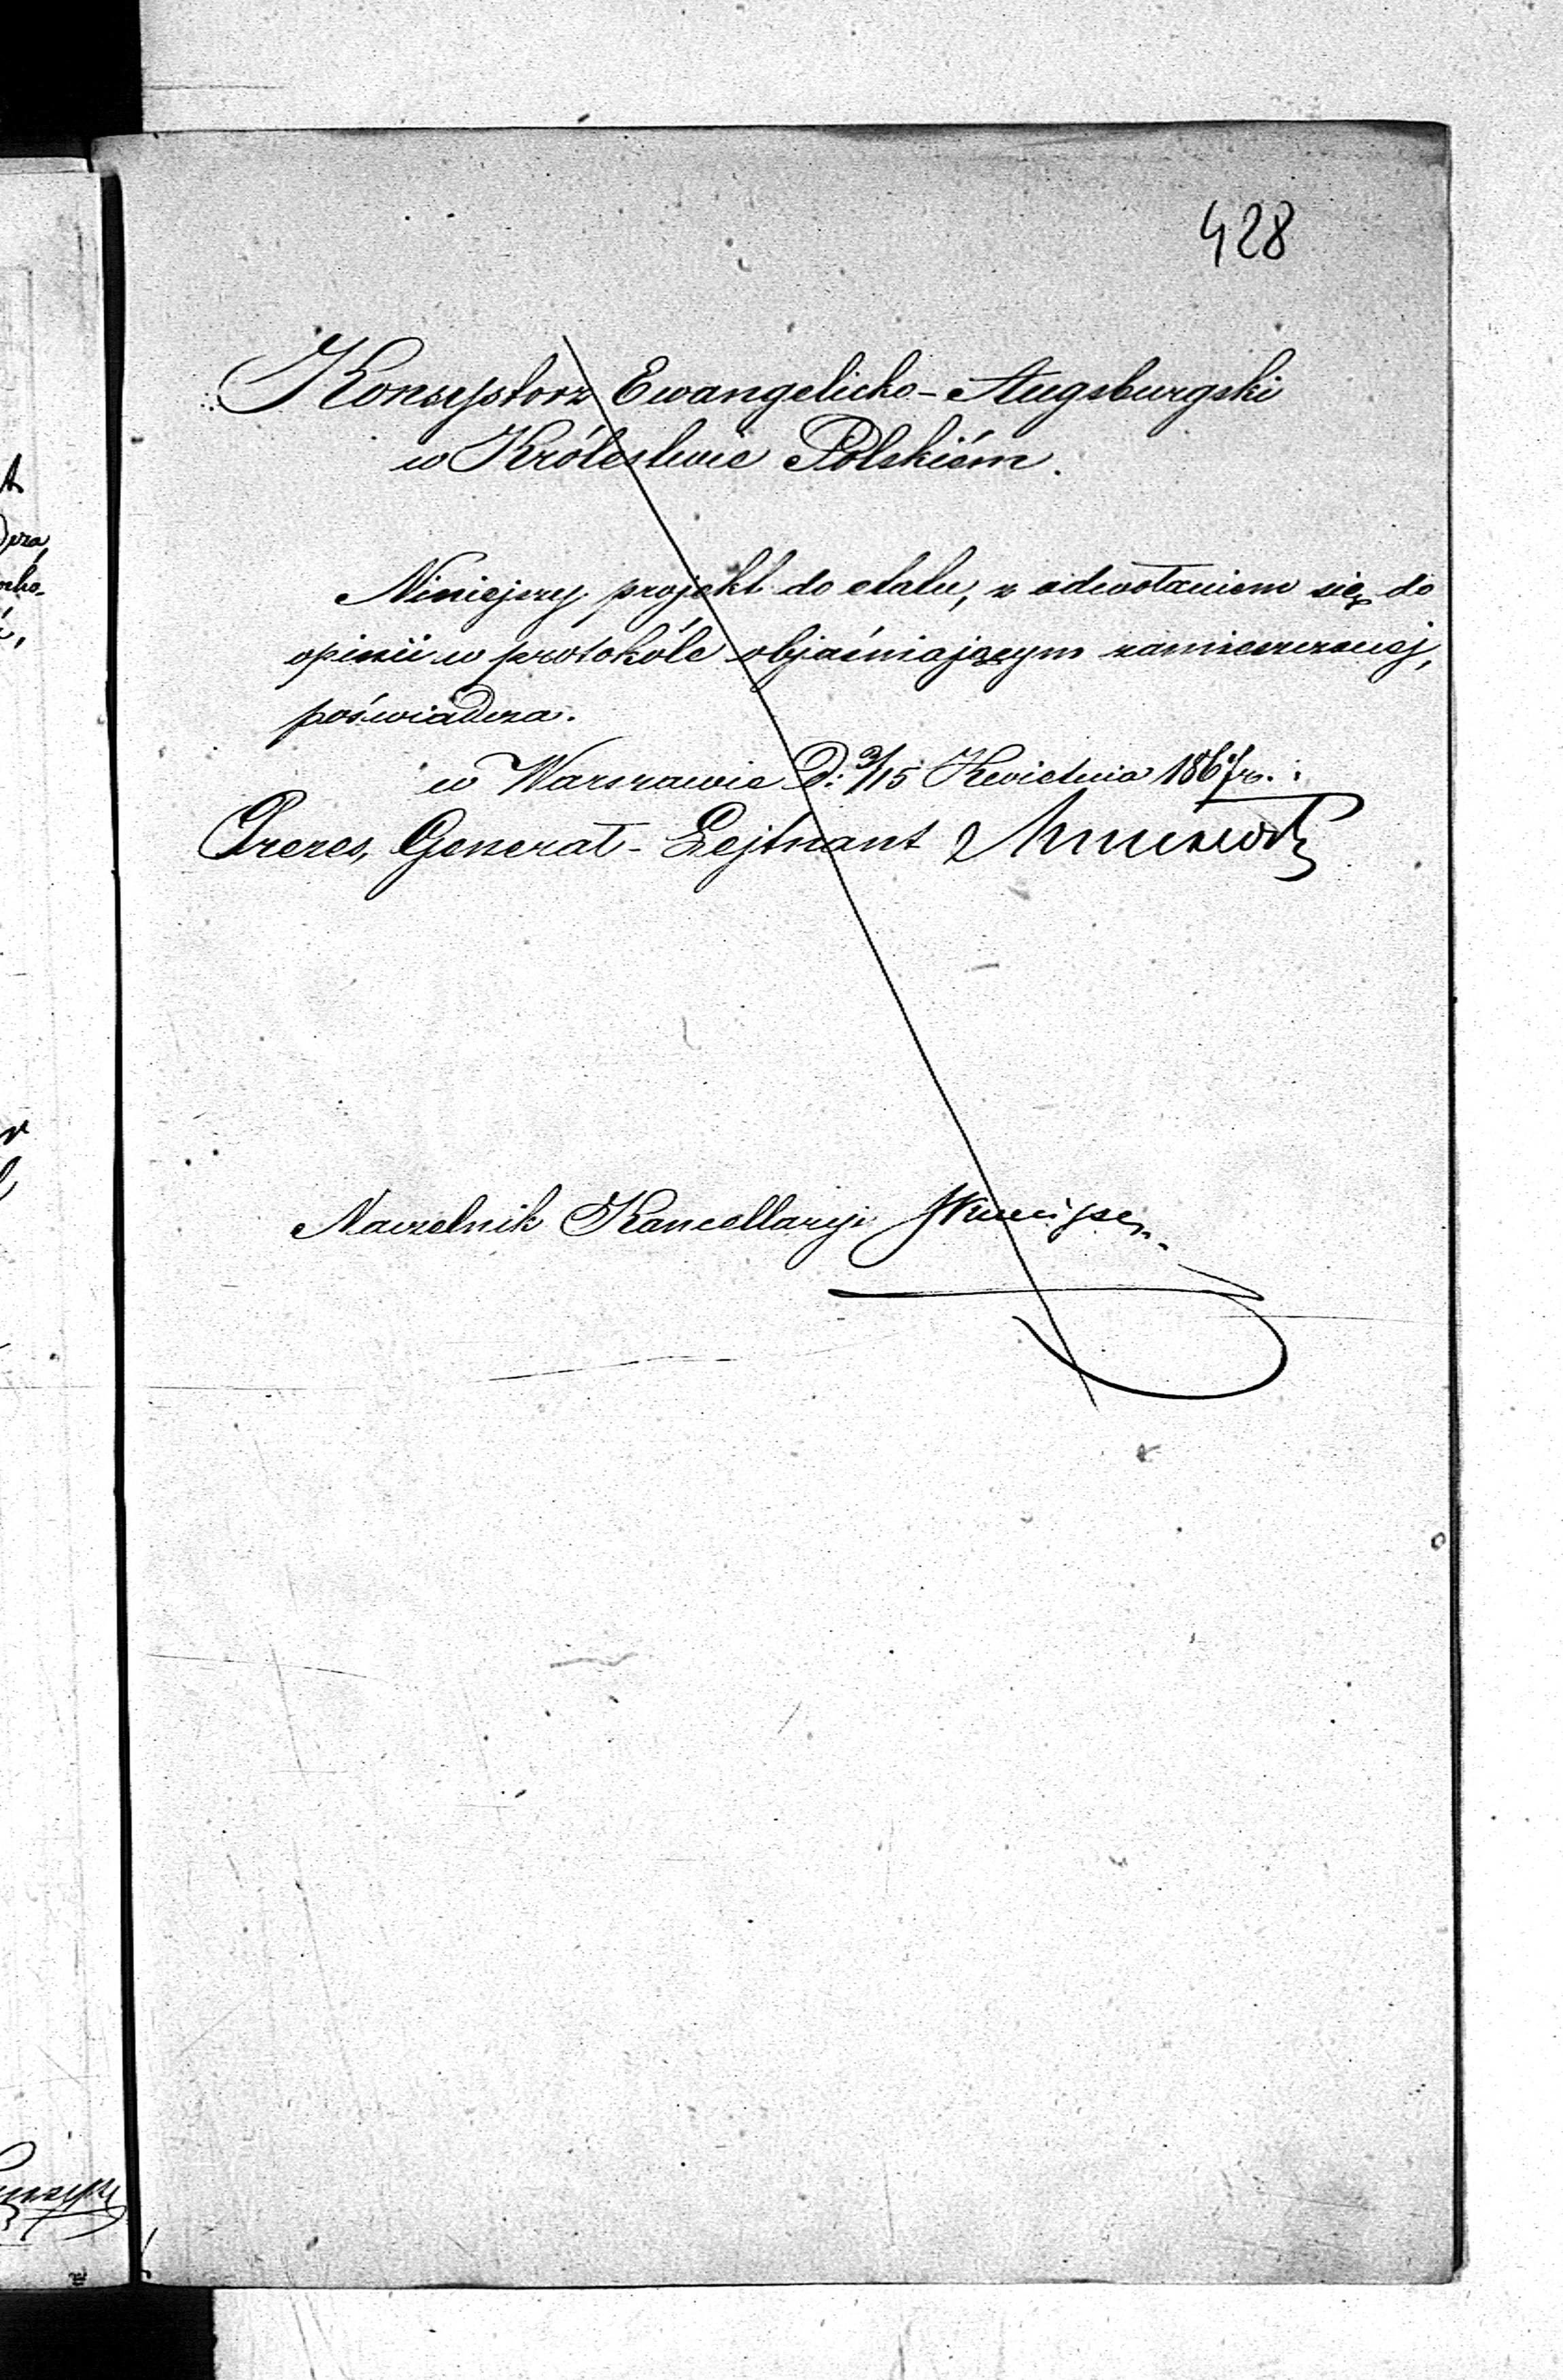 428
Konsystorz Ewangelicko-Augsburgski
w Królestwie Polskiém.
Niniejszy projekt do etatu, z odwołaniem się do
opinii w protokóle objaśniającym zamieszczonej,
poświadcza.
w Warszawie D: 3/15 Kwietnia 1867 r.
Prezes, Generał-Lejtnant
Naczelnik Kancellaryi